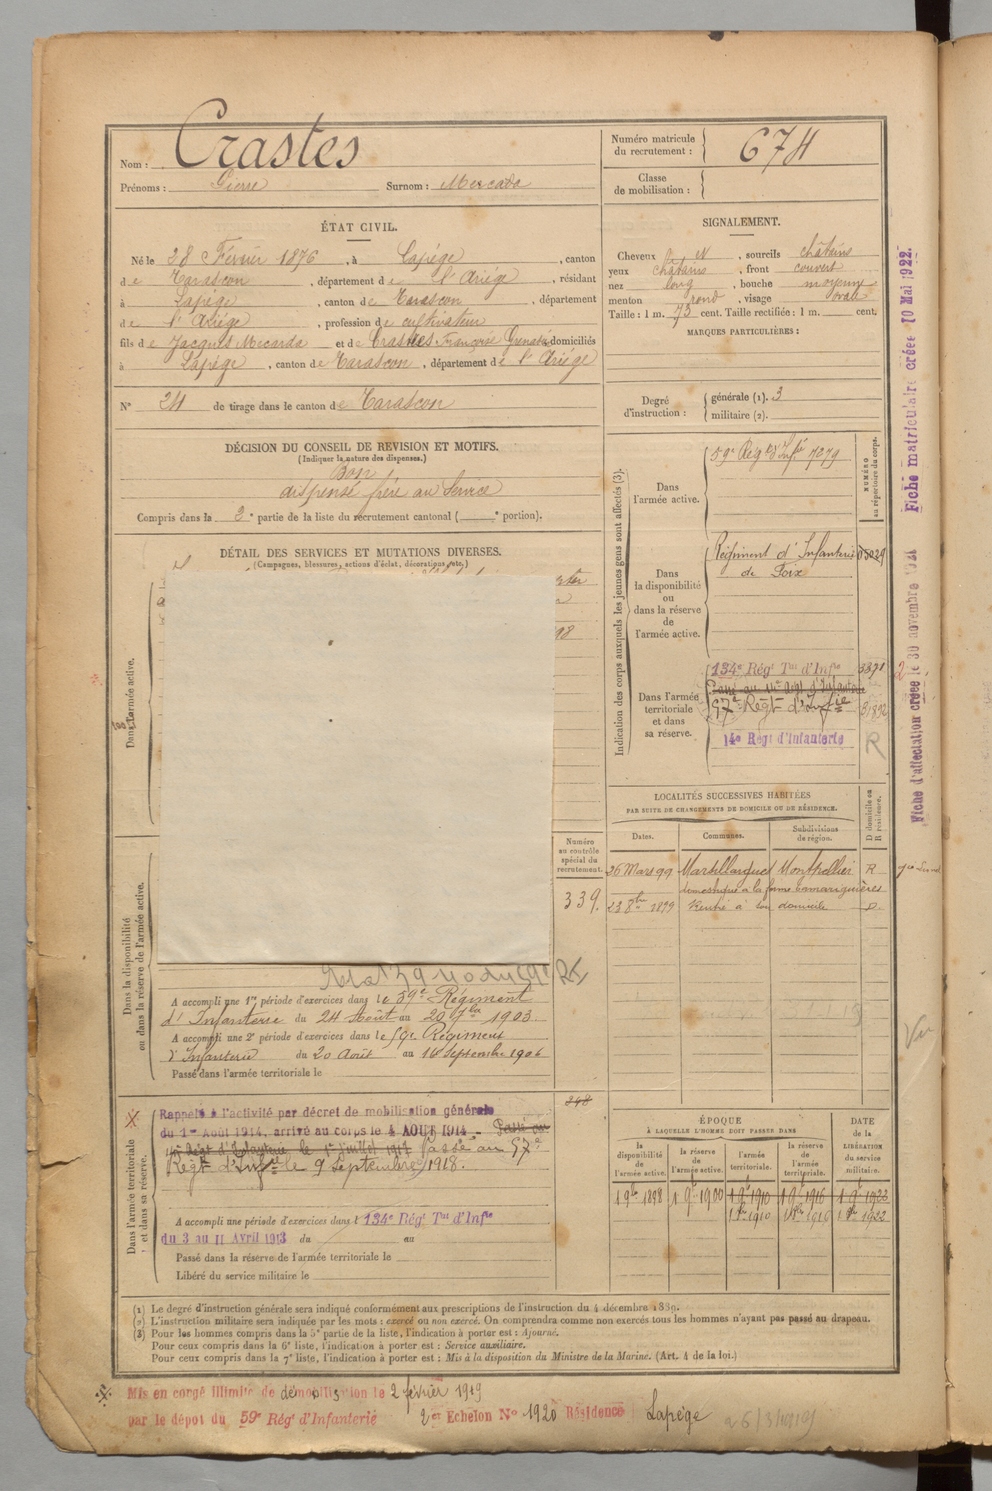 Nom : Crastes
Prénoms : Pierre Surnom : Mercada
Numéro matricule du recrutement : 674
Classe de mobilisation :
ÉTAT CIVIL.
Né le 28 Février 1876, à Lapège, canton
de Tarascon, département de l'Ariège, résidant
à Lapège, canton de Tarascon, département
de l'Ariège, profession de cultivateur
fils de Jacques Mecarda et de Crastes Françoise domiciliés
à Lapège, canton de Tarascon, département de l'Ariège
N° 24 de tirage dans le canton de Tarascon
DÉCISION DU CONSEIL DE REVISION ET MOTIFS.
(Indiquer la nature des dispenses.)
Bon
dispensé frère au service
Compris dans la 2e partie de la liste du recrutement cantonal ( e portion).
DÉTAIL DES SERVICES ET MUTATIONS DIVERSES.
(Campagnes, blessures, actions d'éclat, décorations, etc.)
Dans l'armée active.
98
Dans la disponibilité
ou dans la réserve de l'armée active.
Numéro
au contrôle
spécial du
recrutement.
339.
A accompli une 1re période d'exercices dans le 59e Régiment
d'Infanterie du 24 Août au 20 7bre 1903.
A accompli une 2e période d'exercices dans le 59e Régiment
d'Infanterie du 20 Août au 16 Septembre 1906
Passé dans l'armée territoriale le
Dans l'armée territoriale
et dans sa réserve.
348
Rappelé à l'activité par décret de mobilisation générale
du 1er Août 1914, arrivé au corps le 4 AOUT 1914 - Passé au
14e Régt d'Infanterie le 1er juillet 1917 Passé au 57e
Régt d'Infie le 9 Septembre 1918.
A accompli une période d'exercices dans l 134e Régt Tal d'Infie
du 3 au 11 Avril 1913 du au
Passé dans la réserve de l'armée territoriale le
Libéré du service militaire le
SIGNALEMENT.
Cheveux et, sourcils châtains
yeux châtains, front couvert
nez long, bouche moyenne
menton rond, visage ovale
Taille : 1 m. 73 cent. Taille rectifiée : 1 m. cent.
MARQUES PARTICULIÈRES :
Degré d'instruction : générale (1). 3
militaire (2).
Indication des corps auxquels les jeunes gens sont affectés (3).
NUMÉRO
au répertoire du corps.
Dans
l'armée active.
59e Régt d'Infie 7279
Dans
la disponibilité
ou
dans la réserve
de
l'armée active.
Régiment d'Infanterie 05029
de Foix
Dans l'armée
territoriale
et dans
sa réserve.
134e Régt Tal d'Infie 3371
Passé au 14e Régt d'Infanterie
57e Régt d'Infie 31892
14e Régt d'Infanterie R
LOCALITÉS SUCCESSIVES HABITÉES
PAR SUITE DE CHANGEMENTS DE DOMICILE OU DE RÉSIDENCE.
Dates. Communes. Subdivisions de région. D domicile ou R résidence.
26 Mars 99 Marsillargues Montpellier R
domestique à la ferme
23 8bre 1899 Rentré à son domicile D.
ÉPOQUE
À LAQUELLE L'HOMME DOIT PASSER DANS
la disponibilité de l'armée active. la réserve de l'armée active. l'armée territoriale. la réserve de l'armée territoriale. DATE de la LIBÉRATION du service militaire.
1 9bre 1898 1 9bre 1900 1 9bre 1910 1 9bre 1916 1 9bre 1922
1 8bre 1910 1 8bre 1916 1 8bre 1922
Fiche d'affectation créée le 30 novembre 1921 Fiche matriculaire créée 10 Mai 1922.
Vu
(1) Le degré d'instruction générale sera indiqué conformément aux prescriptions de l'instruction du 4 décembre 1889.
(2) L'instruction militaire sera indiquée par les mots : exercé ou non exercé. On comprendra comme non exercés tous les hommes n'ayant pas passé au drapeau.
(3) Pour les hommes compris dans la 5e partie de la liste, l'indication à porter est : Ajourné.
Pour ceux compris dans la 6e liste, l'indication à porter est : Service auxiliaire.
Pour ceux compris dans la 7e liste, l'indication à porter est : Mis à la disposition du Ministre de la Marine. (Art. 4 de la loi.)
Mis en congé illimité de démobilisation le 2 février 1919
par le dépot du 59e Régt d'Infanterie 2er Echelon N° 1920 Résidence Lapège 26/3/1919